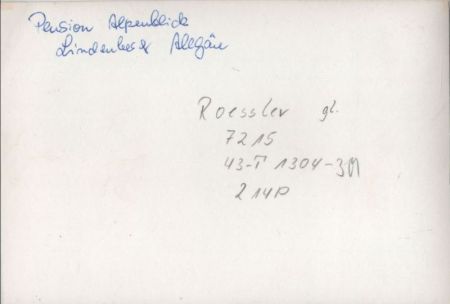 Pension Alpenblick
Lindenberg Allgäu
Roessler gl.
7215
43-T 1304-3M
214P